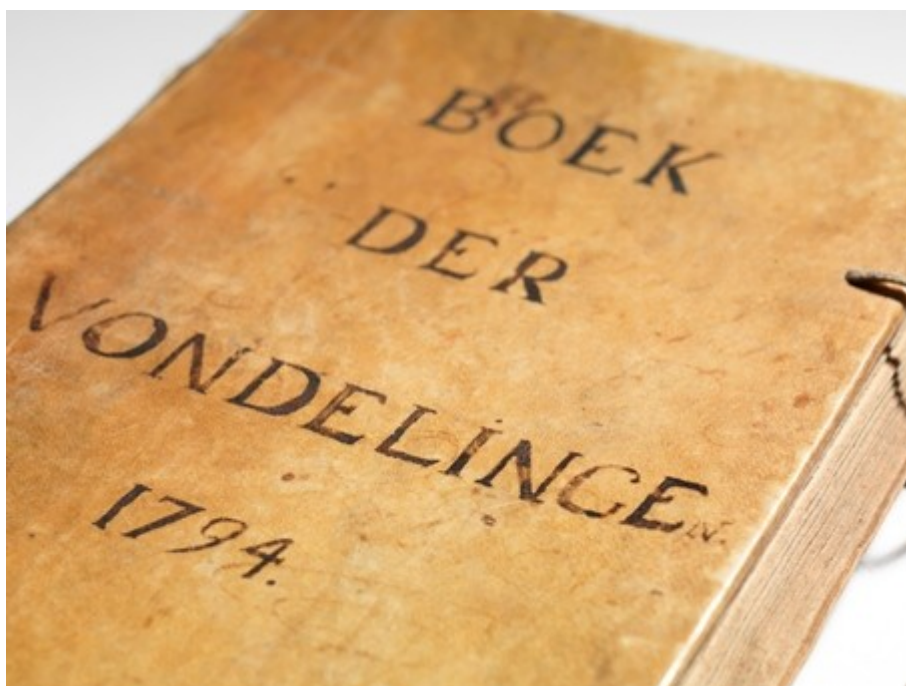 BOEK
DER
VONDELINGEN.
1794.